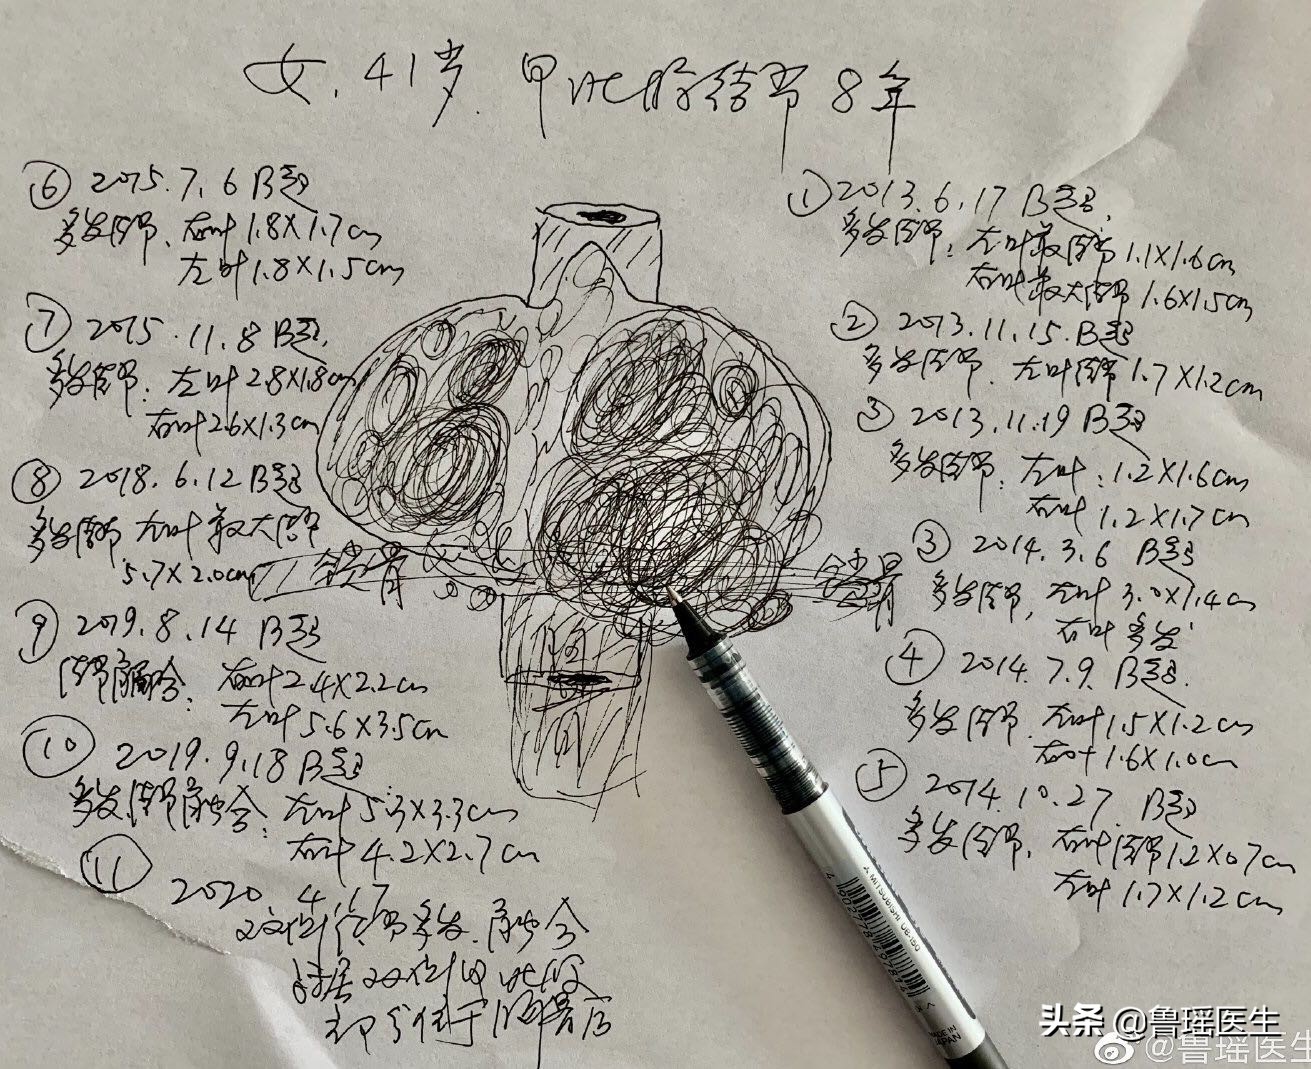 女、41岁、甲状腺结节8年
① 2013.6.17 B超,
多发结节:左叶最大结节1.1X1.6cm
右叶最大结节1.6X1.5cm
② 2013.11.15.B超
多发结节、左叶结节1.7X1.2cm
③ 2013.11.19 B超
多发结节:左叶:1.2X1.6cm
右叶1.2X1.7cm
③ 2014.3.6 B超
多发结节,左叶3.0X1.4cm
右叶多发
④ 2014.7.9.B超.
多发结节、左叶1.5X1.2cm
右叶1.6X1.0cm
⑤ 2014.10.27.B超
多发结节,右叶结节1.2X0.7cm
左叶1.7X1.2cm
⑥ 2015.7.6 B超
多发结节、右叶1.8X1.7cm
左叶1.8X1.5cm
⑦ 2015.11.8 B超,
多发结节:左叶2.8X1.8cm
右叶2.6X1.3cm
⑧ 2018.6.12 B超
多发结节 左叶最大结节
5.7X2.0cm
⑨ 2019.8.14 B超
结节融合:右叶2.4X2.2cm
左叶5.6X3.5cm
⑩ 2019.9.18 B超
多发结节融合:左叶5.3X3.3cm
右叶4.2X2.7cm
⑪ 2020.4.17
双侧结节多发、融合
双侧甲状腺
部分位于胸骨后
锁骨
锁骨
MITSUBISHI UB-150
4 902778
MADE IN
JAPAN
头条 @鲁瑶医生
@鲁瑶医生